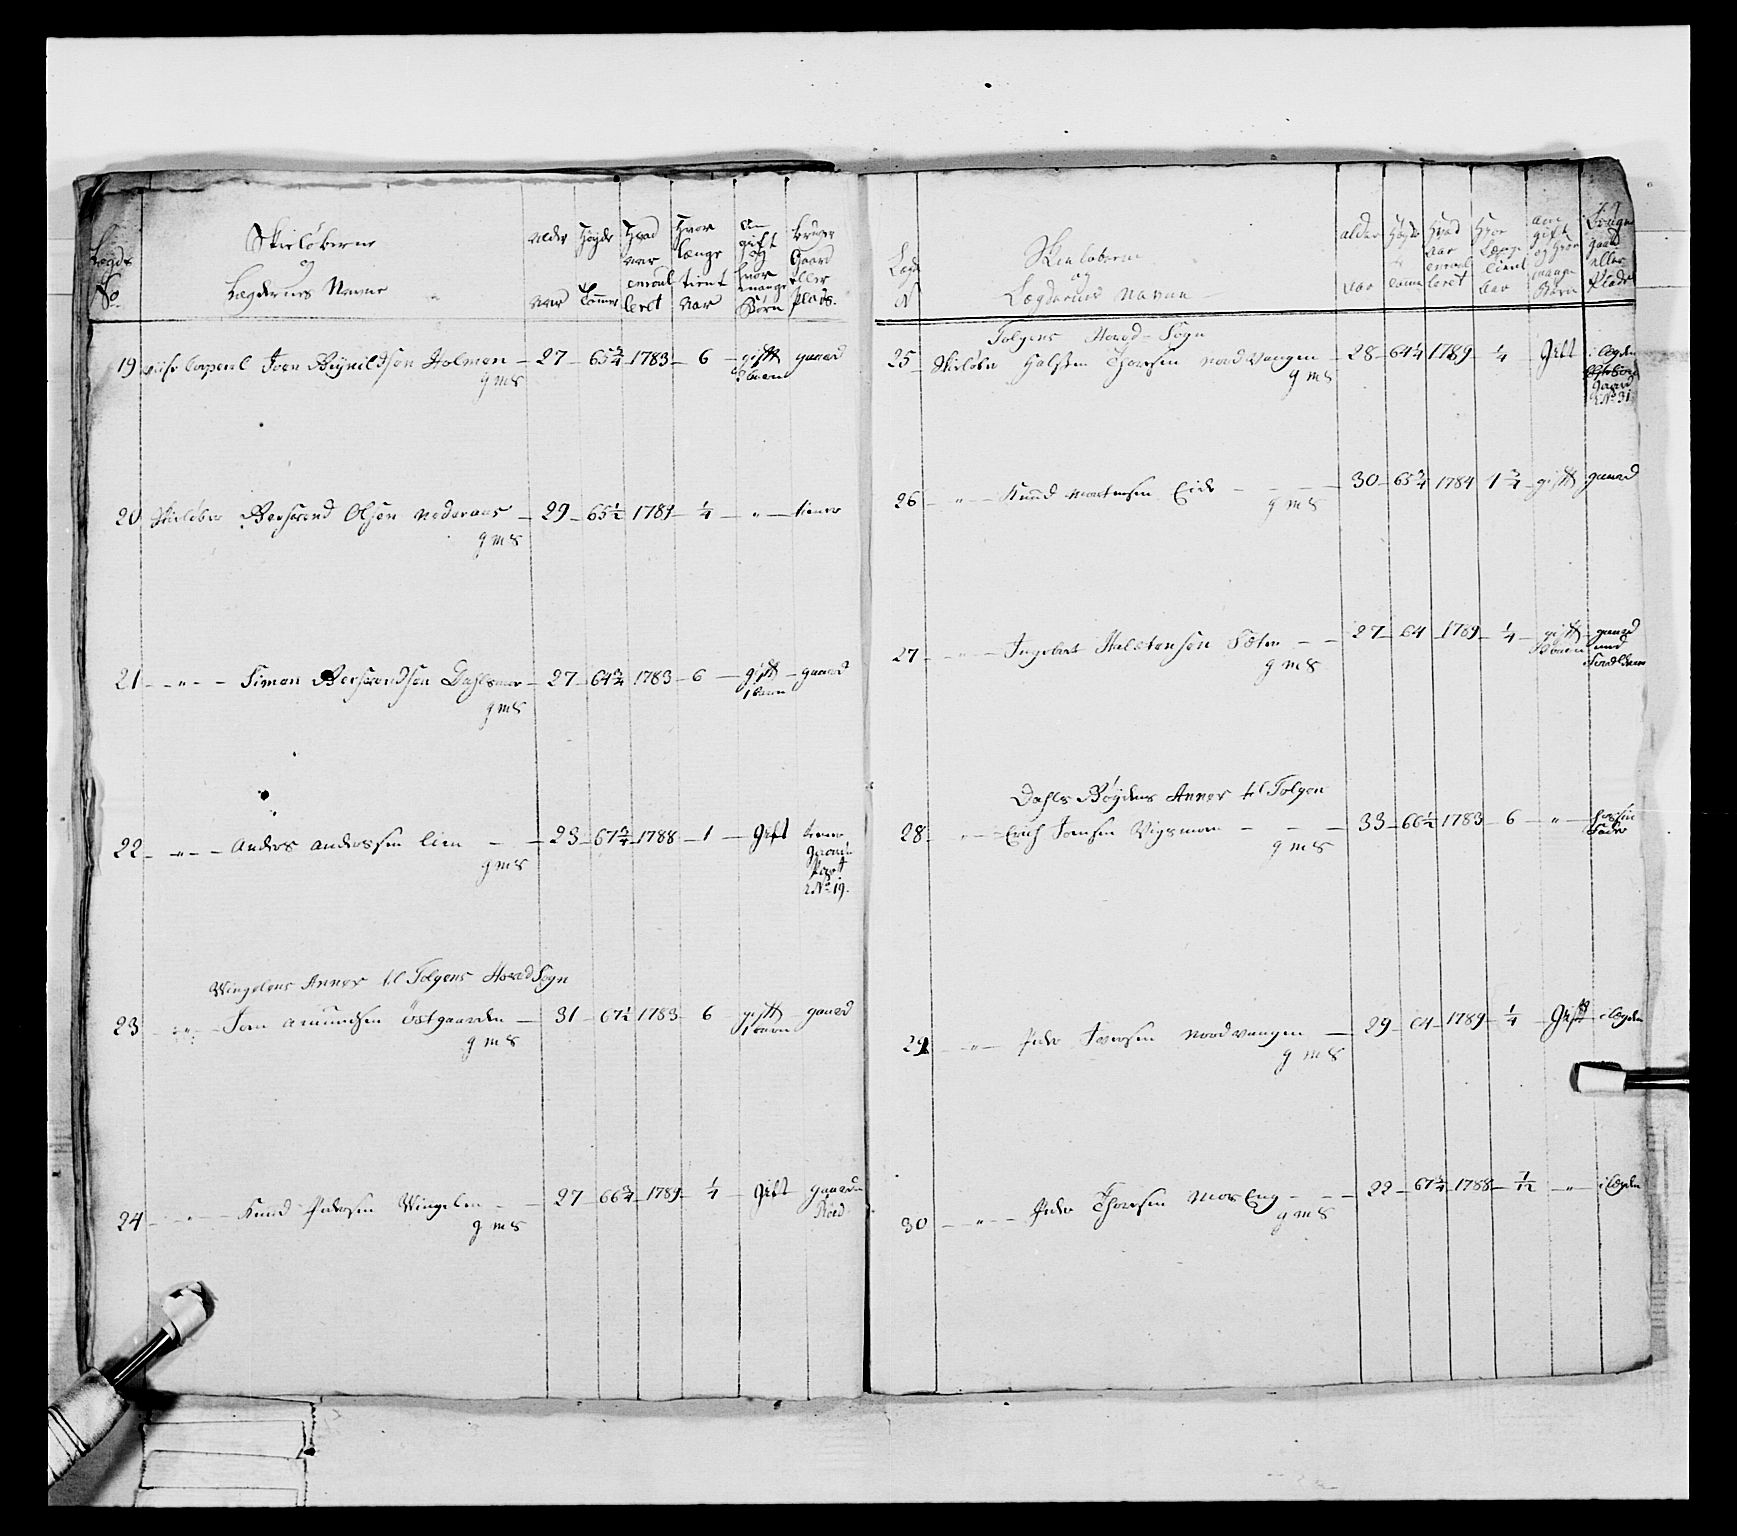 Lægds No. | Skieløberne og Lægdernes Navne | Alder Aar | Høyde Tommer | Hvad Aar enroulleret | Hvor længe tient Aar | Om gift og hvor mange Børn | bruger Gaard eller Plads.
19 vice Corporal Joen Røynildsøn Holmen — 27 — 65 3/4 1783 — 6 — gift 2 børn gaard
g m s
20 Skieløber Bersvend Olsøn Nederaas — 29 — 65 1/2 1789 — 1/4 — " — tiener
g m s
21 — " — Simon Bersvendsøn Dahlsmoe — 27 — 64 3/4 1783 — 6 — gift 1 barn — gaard
g m s
22 — " — Anders Anderssen Lien — 23 — 67 3/4 1788 — 1 — Gift tiener
g m s
L No 19.
Wingelens Annex til Tolgens Hoved Sogn
23 — " — Joen Amundsen Østgaarden — 31 — 67 1/2 1783 — 6 — gift 1 barn — gaard
g m s
24 — " — Knud Pedersen Wingelen — 27 — 66 3/4 1789 — 1/4 — Gift gaard
g m s
Lægd N | Skieløberne og Lægdernes Navne | Alder Aar | Høyde Tomme | Hvad Aar enroulleret | Hvor Længe tient Aar | om gift og Hvor mange Børn | Bruger gaard eller Plads
Tolgens Hoved-Sogn
25 Skieløber Halsten Thoresen Nordvangen — 28 — 64 1/4 1789 — 1/4 Gift i Lægden
g m s
Gaard L No 31
26 — " — Knud Mortensen Eide — 30 — 65 3/4 1784 1 3/4 — gift gaard
g m s
27 — " — Ingebret Halstensøn Sæter — 27 — 64 1789 — 1/4 gift — gaard
g m s
Dahls Bøydens Annex til Tolgen
28 — " — Erich Joensen Vigsmoen — 33 — 66 1/2 1783 — 6 — " —
g m s
29 — " — Peder Iversen Nordvangen — 29 — 64 — 1789 — 1/4 — Gift i Lægden
g m s
30 — " — Peder Thoresen Mos Eng — 22 — 67 3/4 1788 — 7/12 — " — i Lægden
g m s